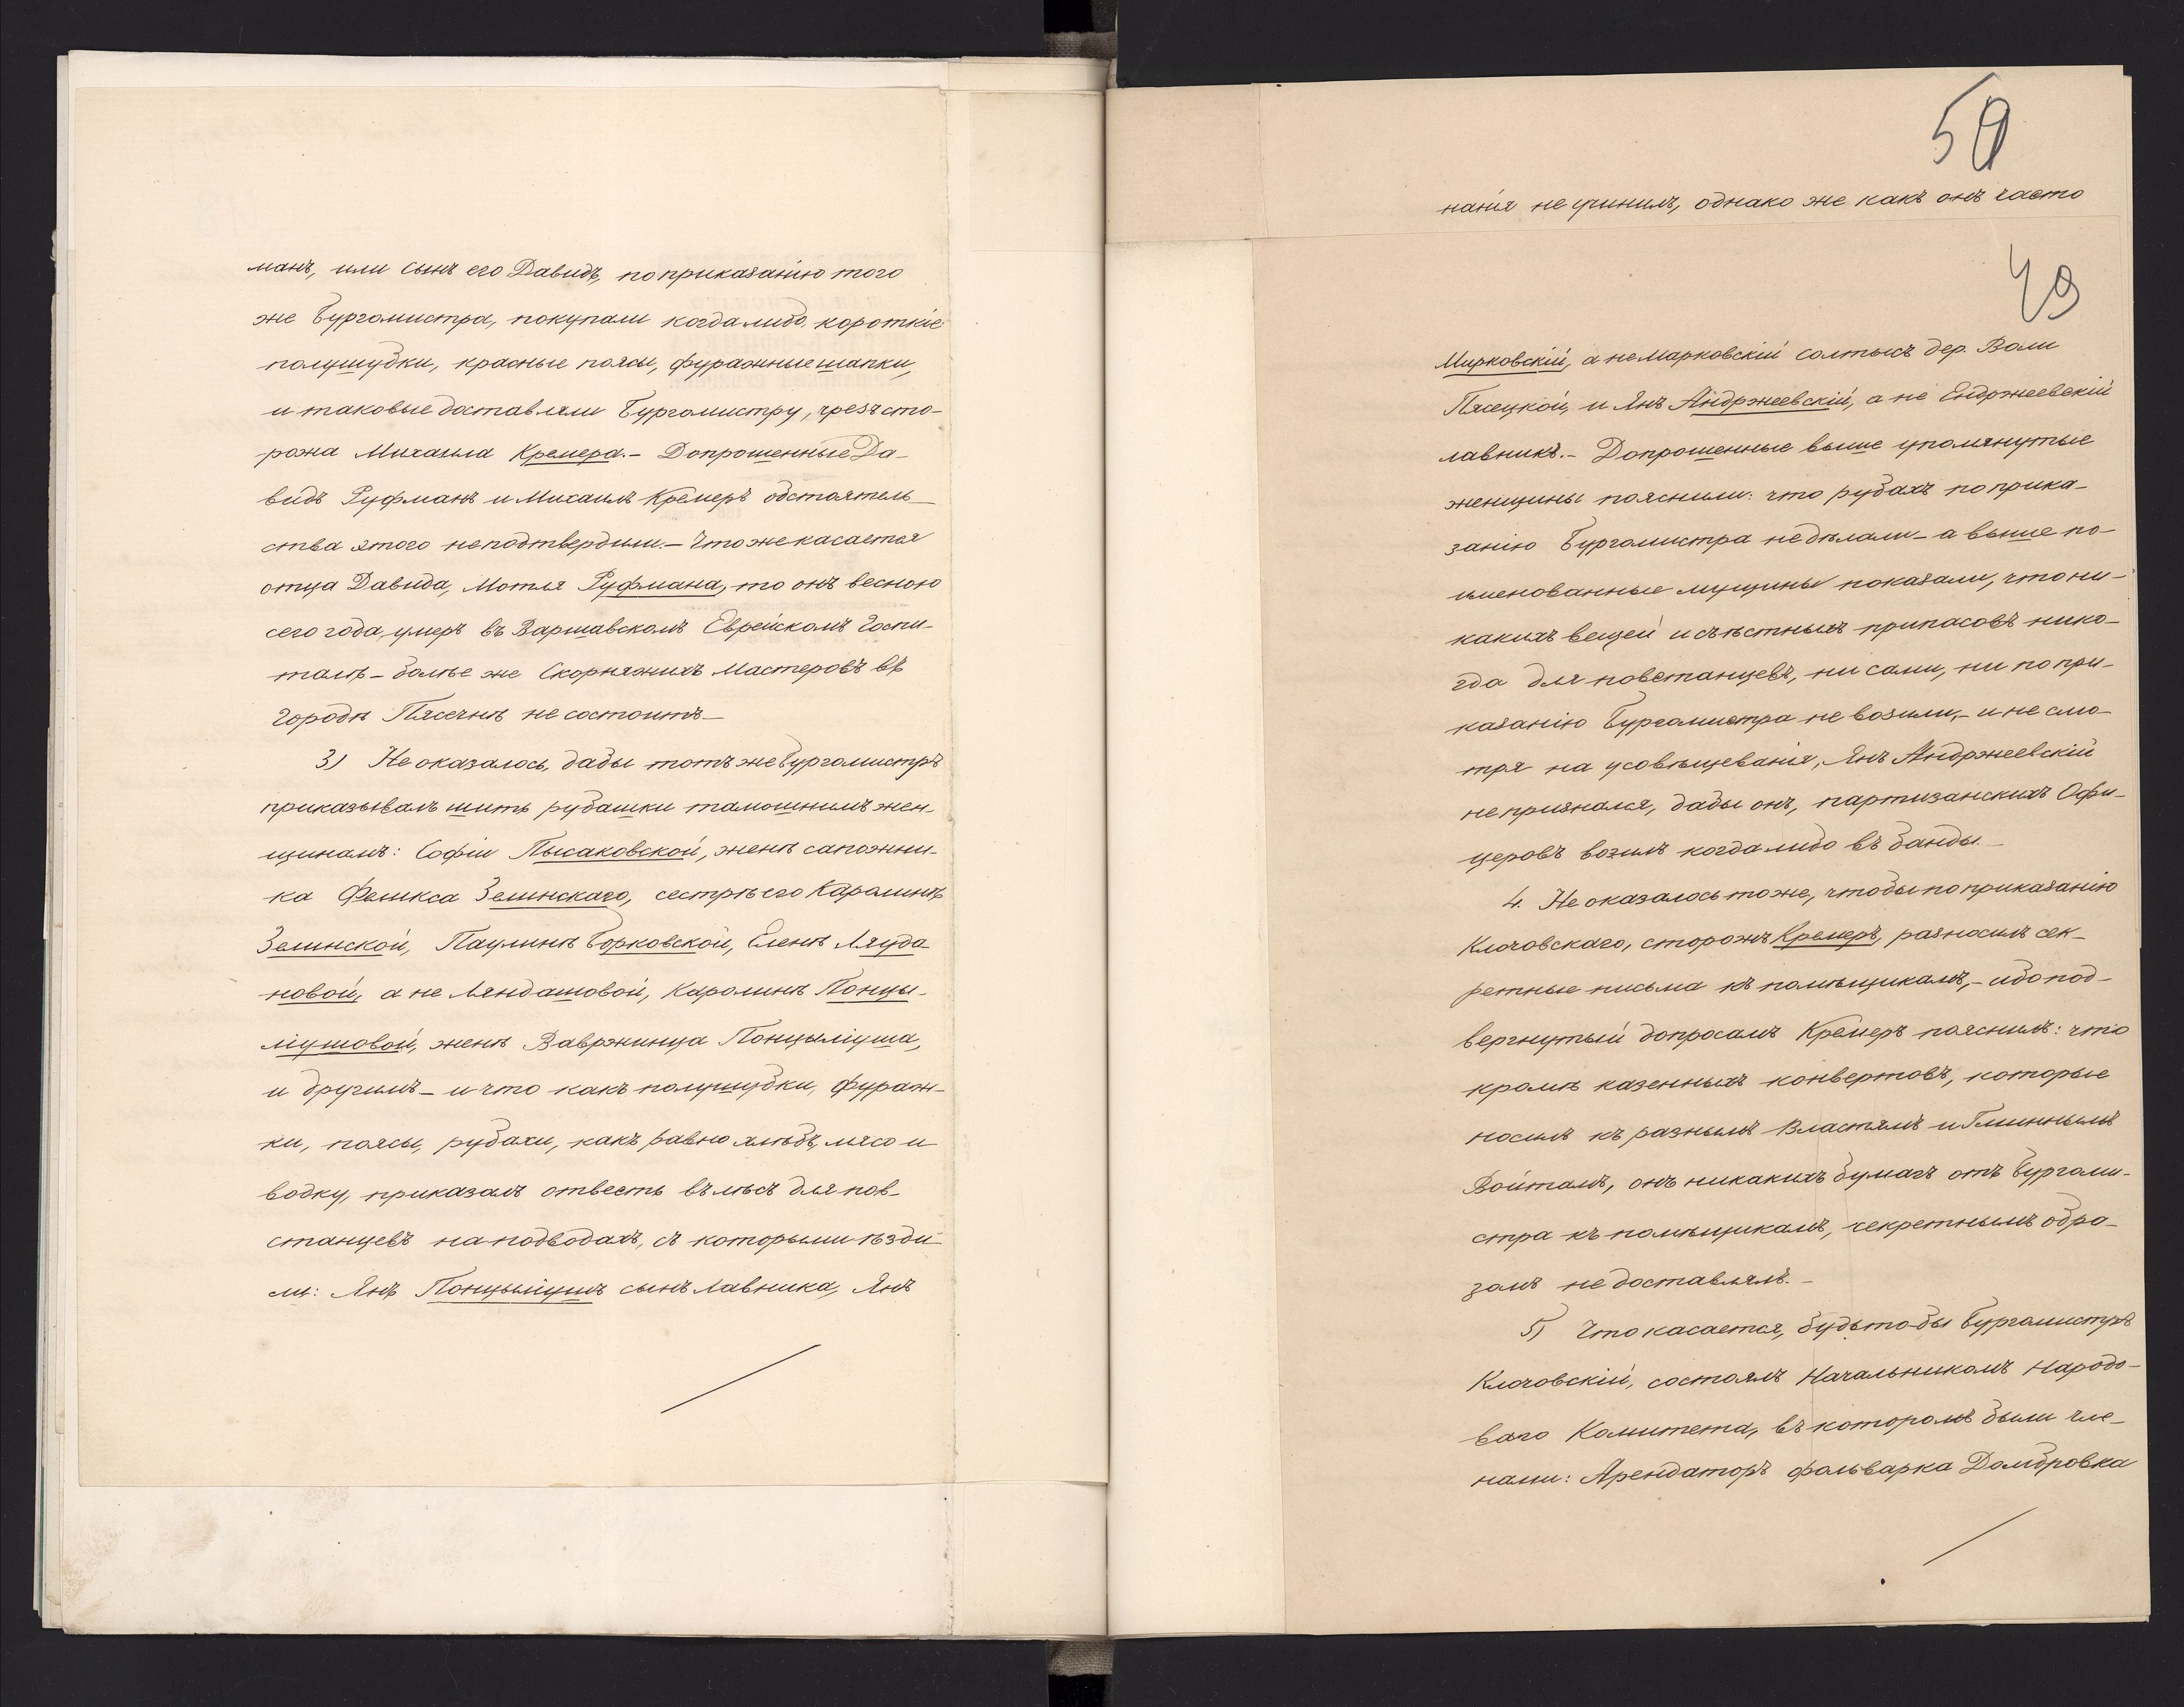 манъ, или сынъ его Давидъ, по приказанію того
же Бургомистра, покупали когда либо, короткіе
полушубки, красные поясы, фуражные шапки,
и таковые доставляли Бургомистру, чрезъ сто-
рожа Михаила Кремера. – Допрошенные Да-
видъ Руфманъ и Михаилъ Кремеръ обстоятель-
ства этого неподтвердили. – Что же касается
отца Давида, Мотля Руфмана, то онъ весною
сего года умеръ въ Варшавскомъ Еврейскомъ Госпи-
талѣ – болѣе же Скорняжихъ Мастеровъ въ
городѣ Пясечнѣ не состоитъ –
3) Не оказалось, дабы тотъ же Бургомистръ
приказывалъ шить рубашки тамошнимъ жен-
щинамъ: Софіи Пысаковской, женѣ сапожни-
ка Феликса Зелинскаго, сестрѣ его Каролинѣ
Зелинской, Паулинѣ Борковской, Еленѣ Ляуда
новой, а не Ляндашовой, Каролинѣ Понцы-
ліушовой, женѣ Вавржинца Понцыліуша,
и другимъ – и что какъ полушубки, фураж-
ки, поясы, рубахи, какъ равно хлѣбъ, мясо и
водку, приказалъ отвесть въ лѣсъ для пов-
станцевъ на подводахъ, съ которыми ѣзди-
ли: Янъ Понцыліушъ сынъ Лавника, Янъ
50
нанія не учинилъ, однако же какъ онъ часто
49
Мирковскій, а не Марковскій солтысъ дер. Воли
Пясецкой, и Янъ Андржеевскій, а не Ендржеевскій
лавникъ. – Допрошенные выше упомянутые
женщины пояснили: что рубахъ по прика-
занію Бургомистра не дѣлали – а выше по-
именованные мущины показали, что ни-
какихъ вещей и съѣстныхъ припасовъ нико-
гда для повстанцевъ, ни сами, ни по при-
казанію Бургомистра не возили, – и не смо-
тря на усовѣщеванія, Янъ Андржеевскій
не признался, дабы онъ, партизанскихъ Офи-
церовъ возилъ когда либо въ банды. –
4. Не оказалось тоже, чтобы по приказанію
Клочовскаго, сторожъ Кремеръ, разносилъ сек-
ретные письма къ помѣщикамъ, – ибо под-
вергнутый допросамъ Кремеръ пояснилъ: что
кромѣ казенныхъ конвертовъ, которые
носилъ къ разнымъ Властямъ и Гминнымъ
Войтамъ, онъ никакихъ бумагъ отъ Бургоми-
стра къ помѣщикамъ, секретнымъ обра-
зомъ не доставлялъ. –
5) Что касается, будьто-бы Бургомистръ
Клочовскій, состоялъ Начальникомъ Народо-
ваго Комитета, въ которомъ были чле-
нами: Арендаторъ фольварка Домбровка